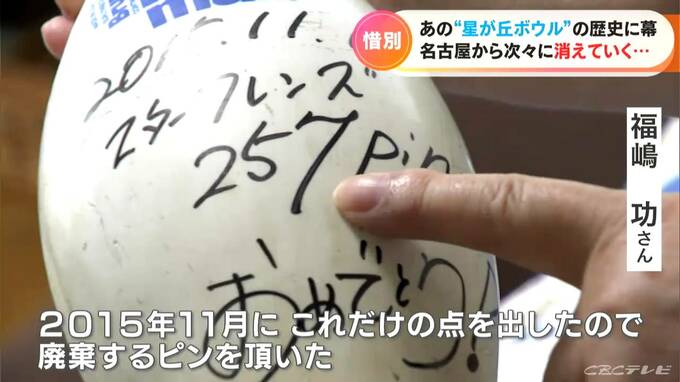 惜別
あの“星が丘ボウル”の歴史に幕
名古屋から次々に消えていく…
福嶋 功さん
2015.11.
スターフレンズ
257 pin
おめでとう!
2015年11月に これだけの点を出したので
廃棄するピンを頂いた
CBCテレビ